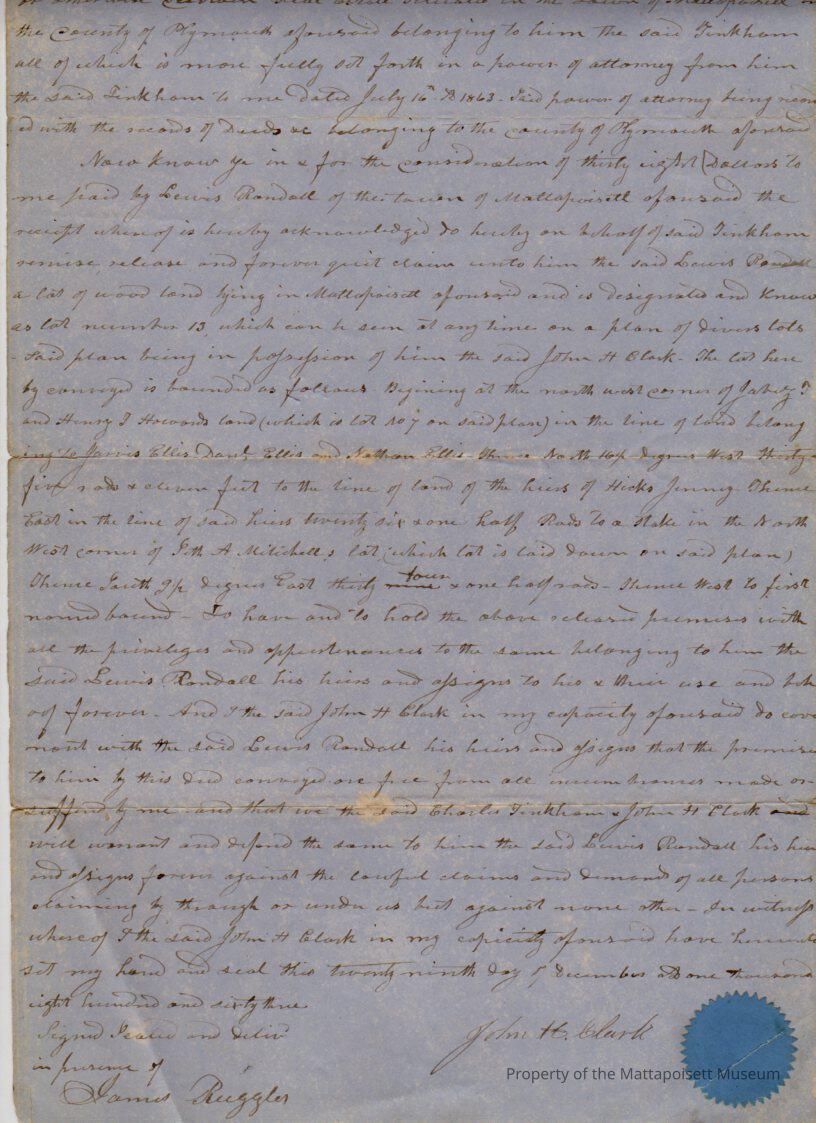 or otherwise certain real estate situated in the town of Mattapoisett in
the county of Plymouth aforesaid belonging to him the said Tinkham
all of which is more fully set forth in a power of attorney from him
the said Tinkham to me dated July 16th AD 1863. Said power of attorney being record
ed with the records of Deeds &c belonging to the county of Plymouth aforesaid
Now know ye in & for the consideration of thirty eight Dollars to
me paid by Lewis Randall of the town of Mattapoisett aforesaid the
receipt whereof is hereby acknowledged do hereby on behalf of said Tinkham
remise, release and forever quit claim unto him the said Lewis Randall
a lot of wood land lying in Mattapoisett aforesaid and is designated and known
as lot number 13, which can be seen at any time on a plan of divers lots
said plan being in possession of him the said John H Clark - The lot here
by conveyed is bounded as follows Begining at the north west corner of Jabez
and Henry T Howards land (which is lot No 7 on said plan) in the line of land belong
ing to Jarvis Ellis, Danl Ellis and Nathan Ellis Thence North degrees West Thirty
five rods & eleven feet to the line of land of the hiers of Hicks Jenney Thence
East in the line of said hiers twenty six & one half Rods to a stake in the North
West corner of Seth A Mitchell's lot (which lot is laid down on said plan)
Thence South 9½ degrees East thirty four & one half rods - Thence West to first
named bound - To have and to hold the above released premises with
all the privileges and appurtenances to the same belonging to him the
said Lewis Randall his hiers and assigns to his & their use and beh
oof forever - And I the said John H Clark in my capacity aforesaid do cove
nant with the said Lewis Randall his hiers and assigns that the premises
to him by this deed conveyed are free from all incumbrances made or
suffered by me and that we the said Charles Tinkham & John H Clark and
will warrant and defend the same to him the said Lewis Randall his hiers
and assigns forever against the lawful claims and demands of all persons
claiming by through or under us but against none other - In witness
whereof I the said John H Clark in my capacity aforesaid have hereunto
set my hand and seal this twenty ninth day of December AD one thousand
eight hundred and sixty three
Signed Sealed and deliv
in presence of
John H. Clark
James Ruggles
Property of the Mattapoisett Museum